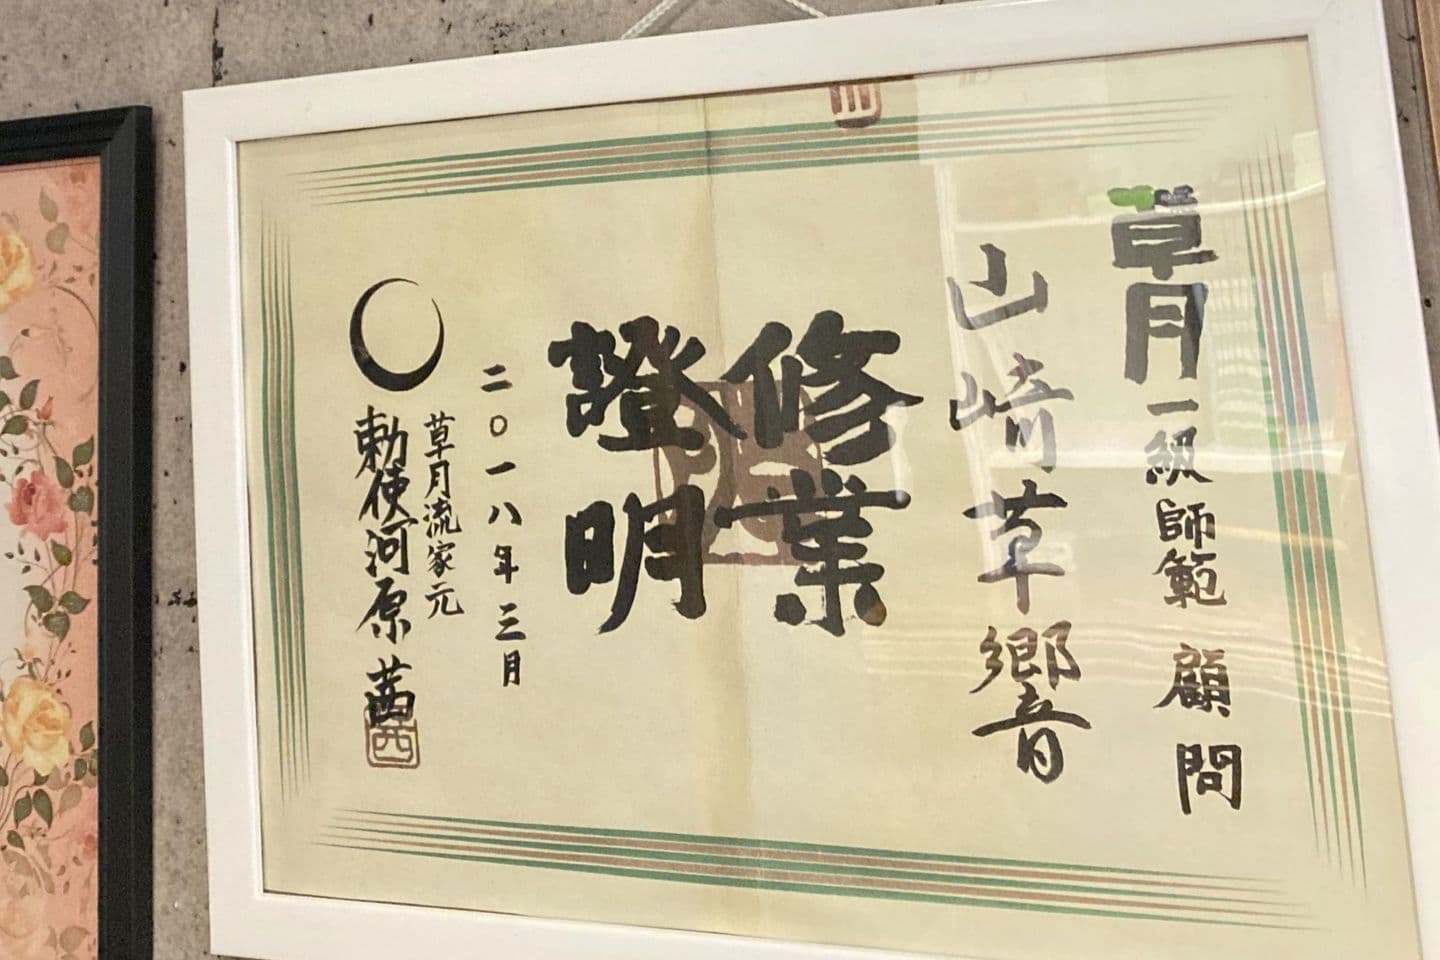 草月一級師範 顧問
山崎草響
修業
證明
二〇一八年三月
草月流家元
勅使河原 茜
茜